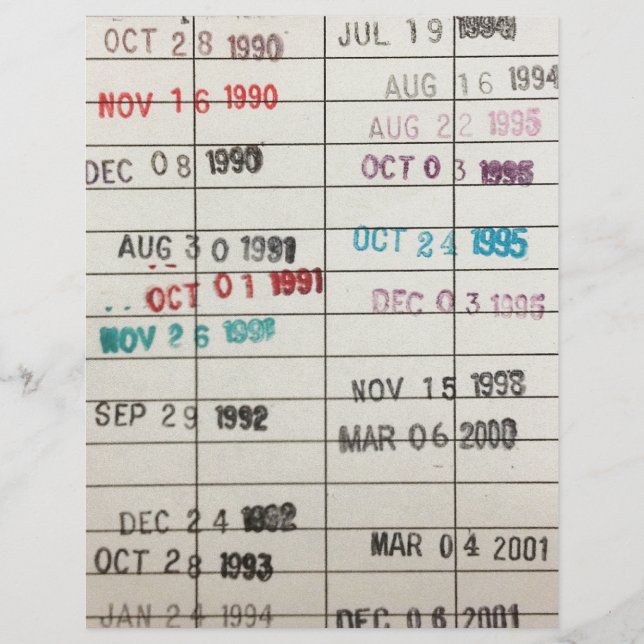 OCT 28 1990
NOV 16 1990
DEC 08 1990
AUG 30 1991
OCT 01 1991
NOV 26 1991
SEP 29 1992
DEC 24 1992
OCT 28 1993
JAN 24 1994
JUL 19 1994
AUG 16 1994
AUG 22 1995
OCT 03 1995
OCT 24 1995
DEC 03 1995
NOV 15 1998
MAR 06 2000
MAR 04 2001
DEC 06 2001